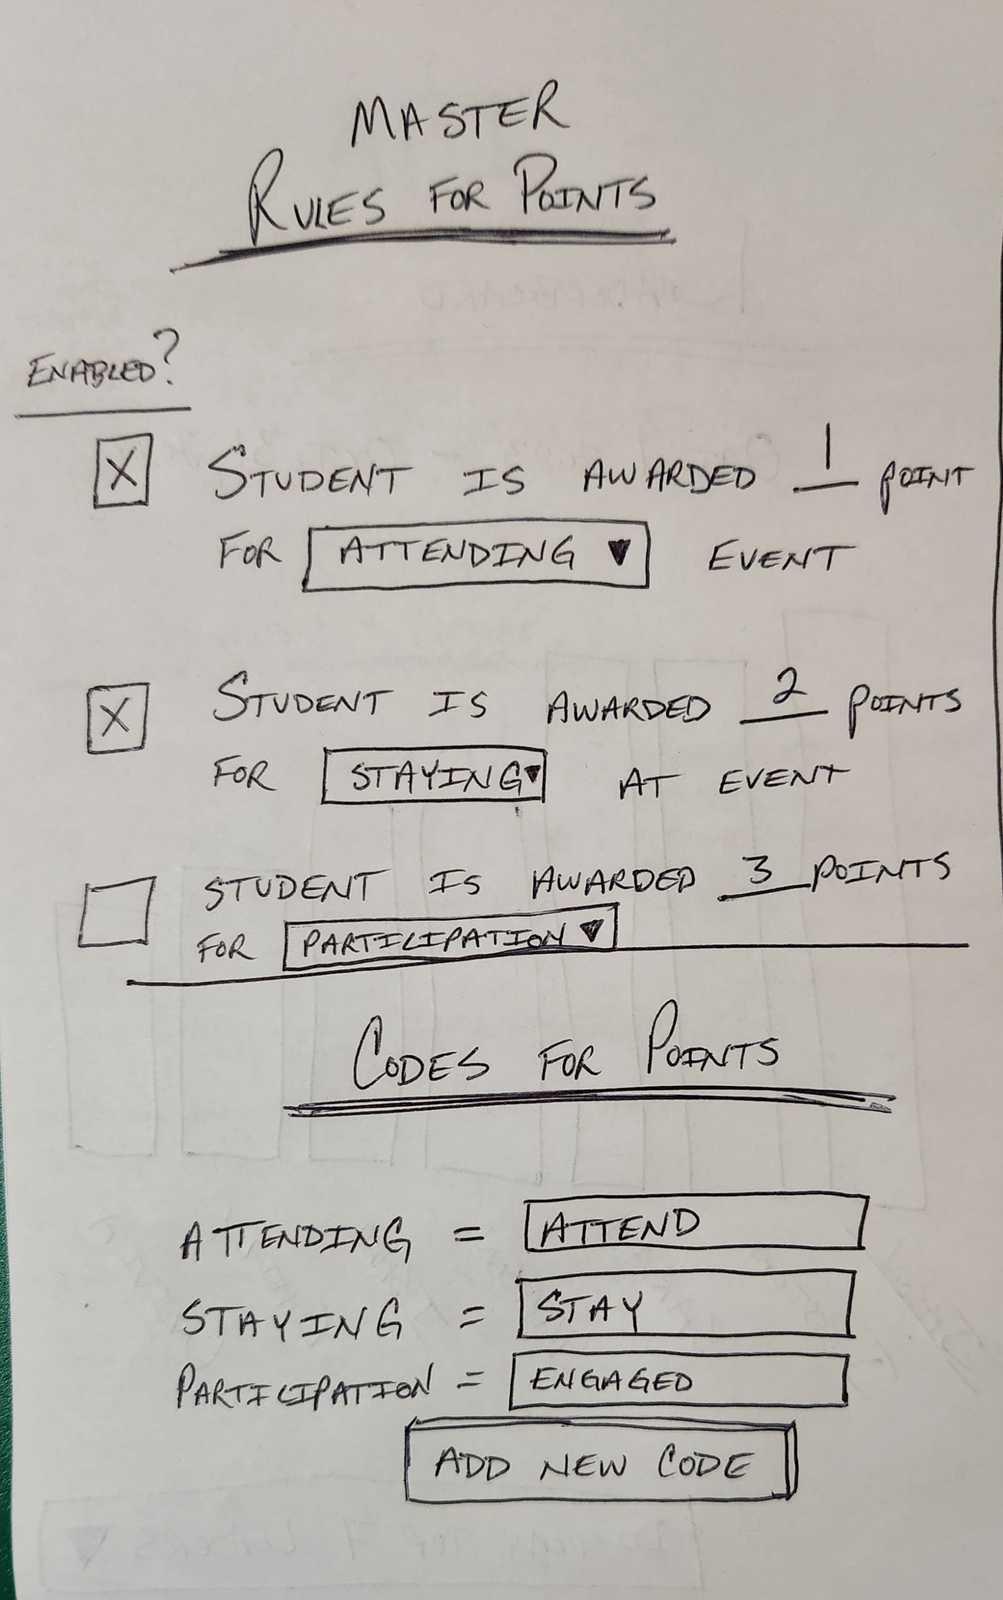 MASTER
RULES FOR POINTS
ENABLED?
X STUDENT IS AWARDED 1 POINT
FOR ATTENDING ▼ EVENT
X STUDENT IS AWARDED 2 POINTS
FOR STAYING ▼ AT EVENT
STUDENT IS AWARDED 3 POINTS
FOR PARTICIPATION ▼
CODES FOR POINTS
ATTENDING = ATTEND
STAYING = STAY
PARTICIPATION = ENGAGED
ADD NEW CODE